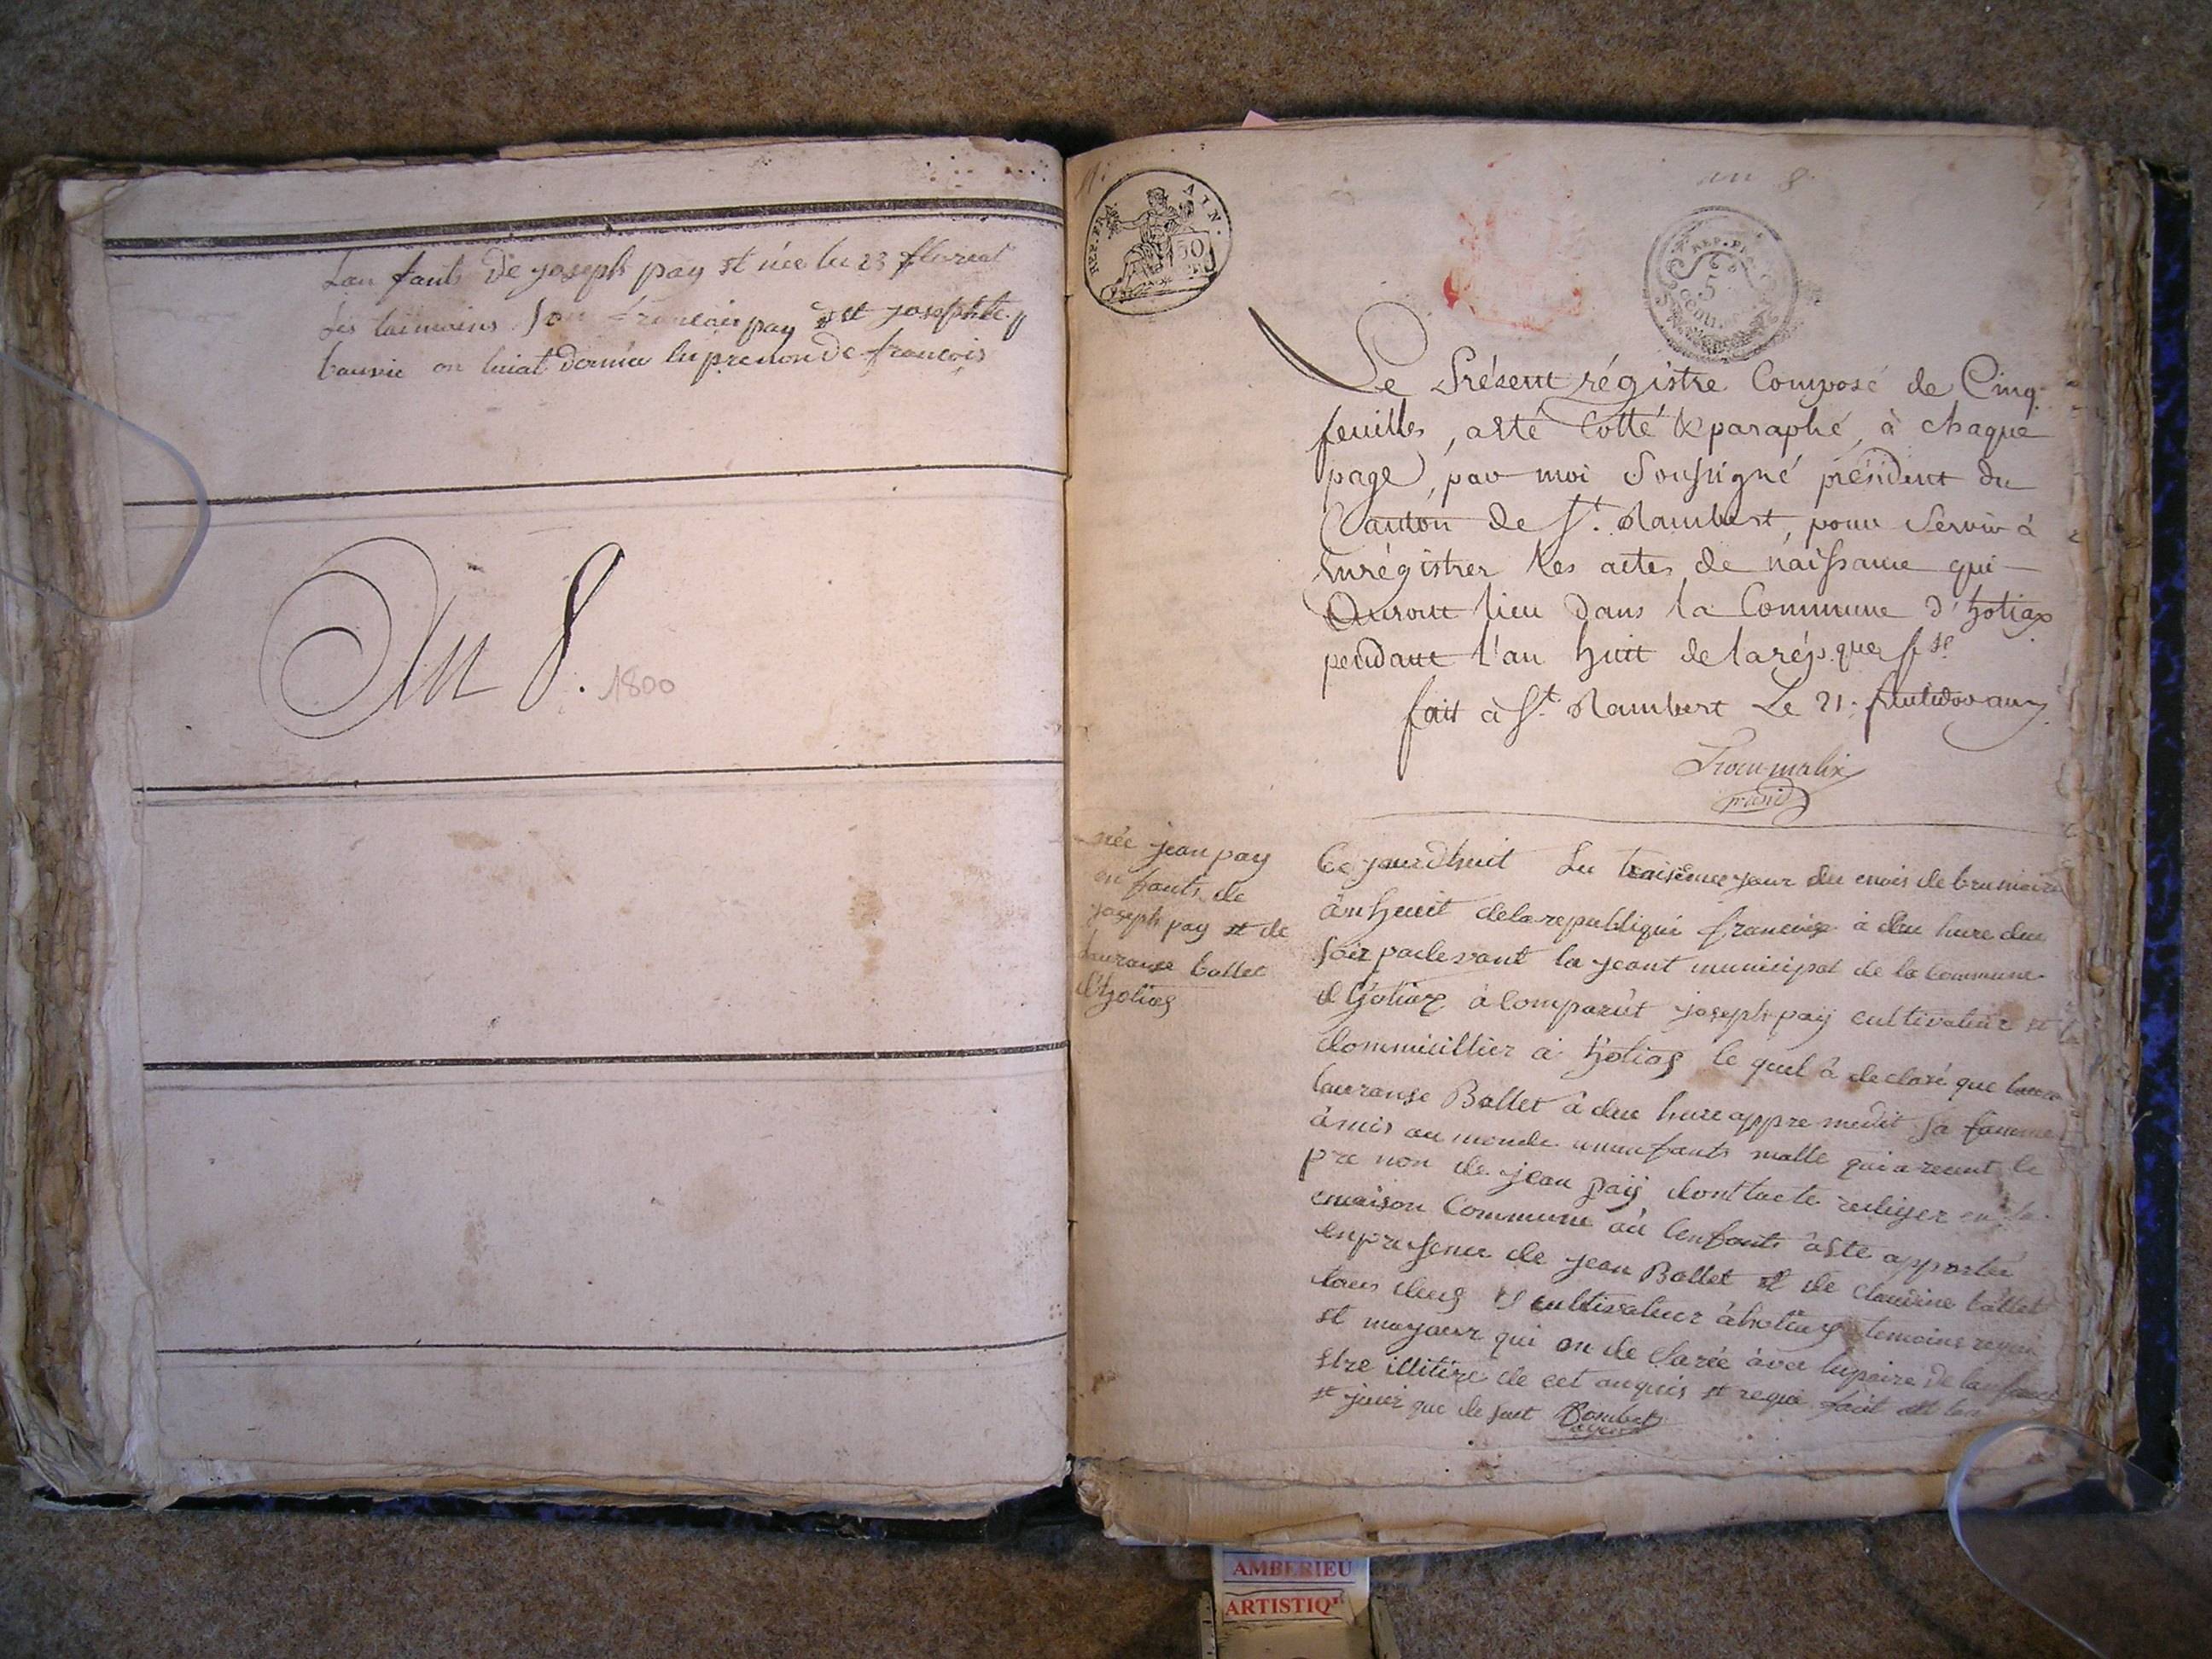 Lan fants De joseph pay st née lu 23 floreal
Les taimoins son francois pay st josephte
bouvie on luiat donnéa lu prenon De francois
An 8.
1800
REP. FRA.
AIN.
50
an 8.
REP. FRA.
5
Le Présent régistre Composé de Cinq
feuilles, asté Cotté & paraphé, à chaque
page, par moi Soussigné président du
Canton de St. Rambert, pour Servir à
Enrégistrer les actes de naissance qui
Auront lieu dans la Commune d'hotiax
pendant l'an huit de la rép.que fse
fait à St. Rambert Le 21. fructidor an 7
présid
née jean pay
en fants de
joseph pay st de
lauranse ballet
d'hotias
Ce jourdhuit Lu troisiemee jour du mois de brumaire
ân huit dela republiqui francoise à due hure du
soir pardevant la jeant municipal de la Commune
d'hotiax à Comparut joseph pay cultivateur st
dommicillier à hotias le quel à declaré que
lauranse Ballet à due hure appre medit sa famme
à mis au monde unenfants malle qui a recut le
pre non de jean paij dont lacte rediger en la
maison Commune où lenfants âste apportée
enpresence de jean Ballet st de claudine ballet
tous deug cultivateur à hotias temoins
st mayour qui on de Clarée àvec lupaire de lanfance
stre illitire de cet anquis st requi fait
st jouir que de sut
AMBERIEU
ARTISTIQ